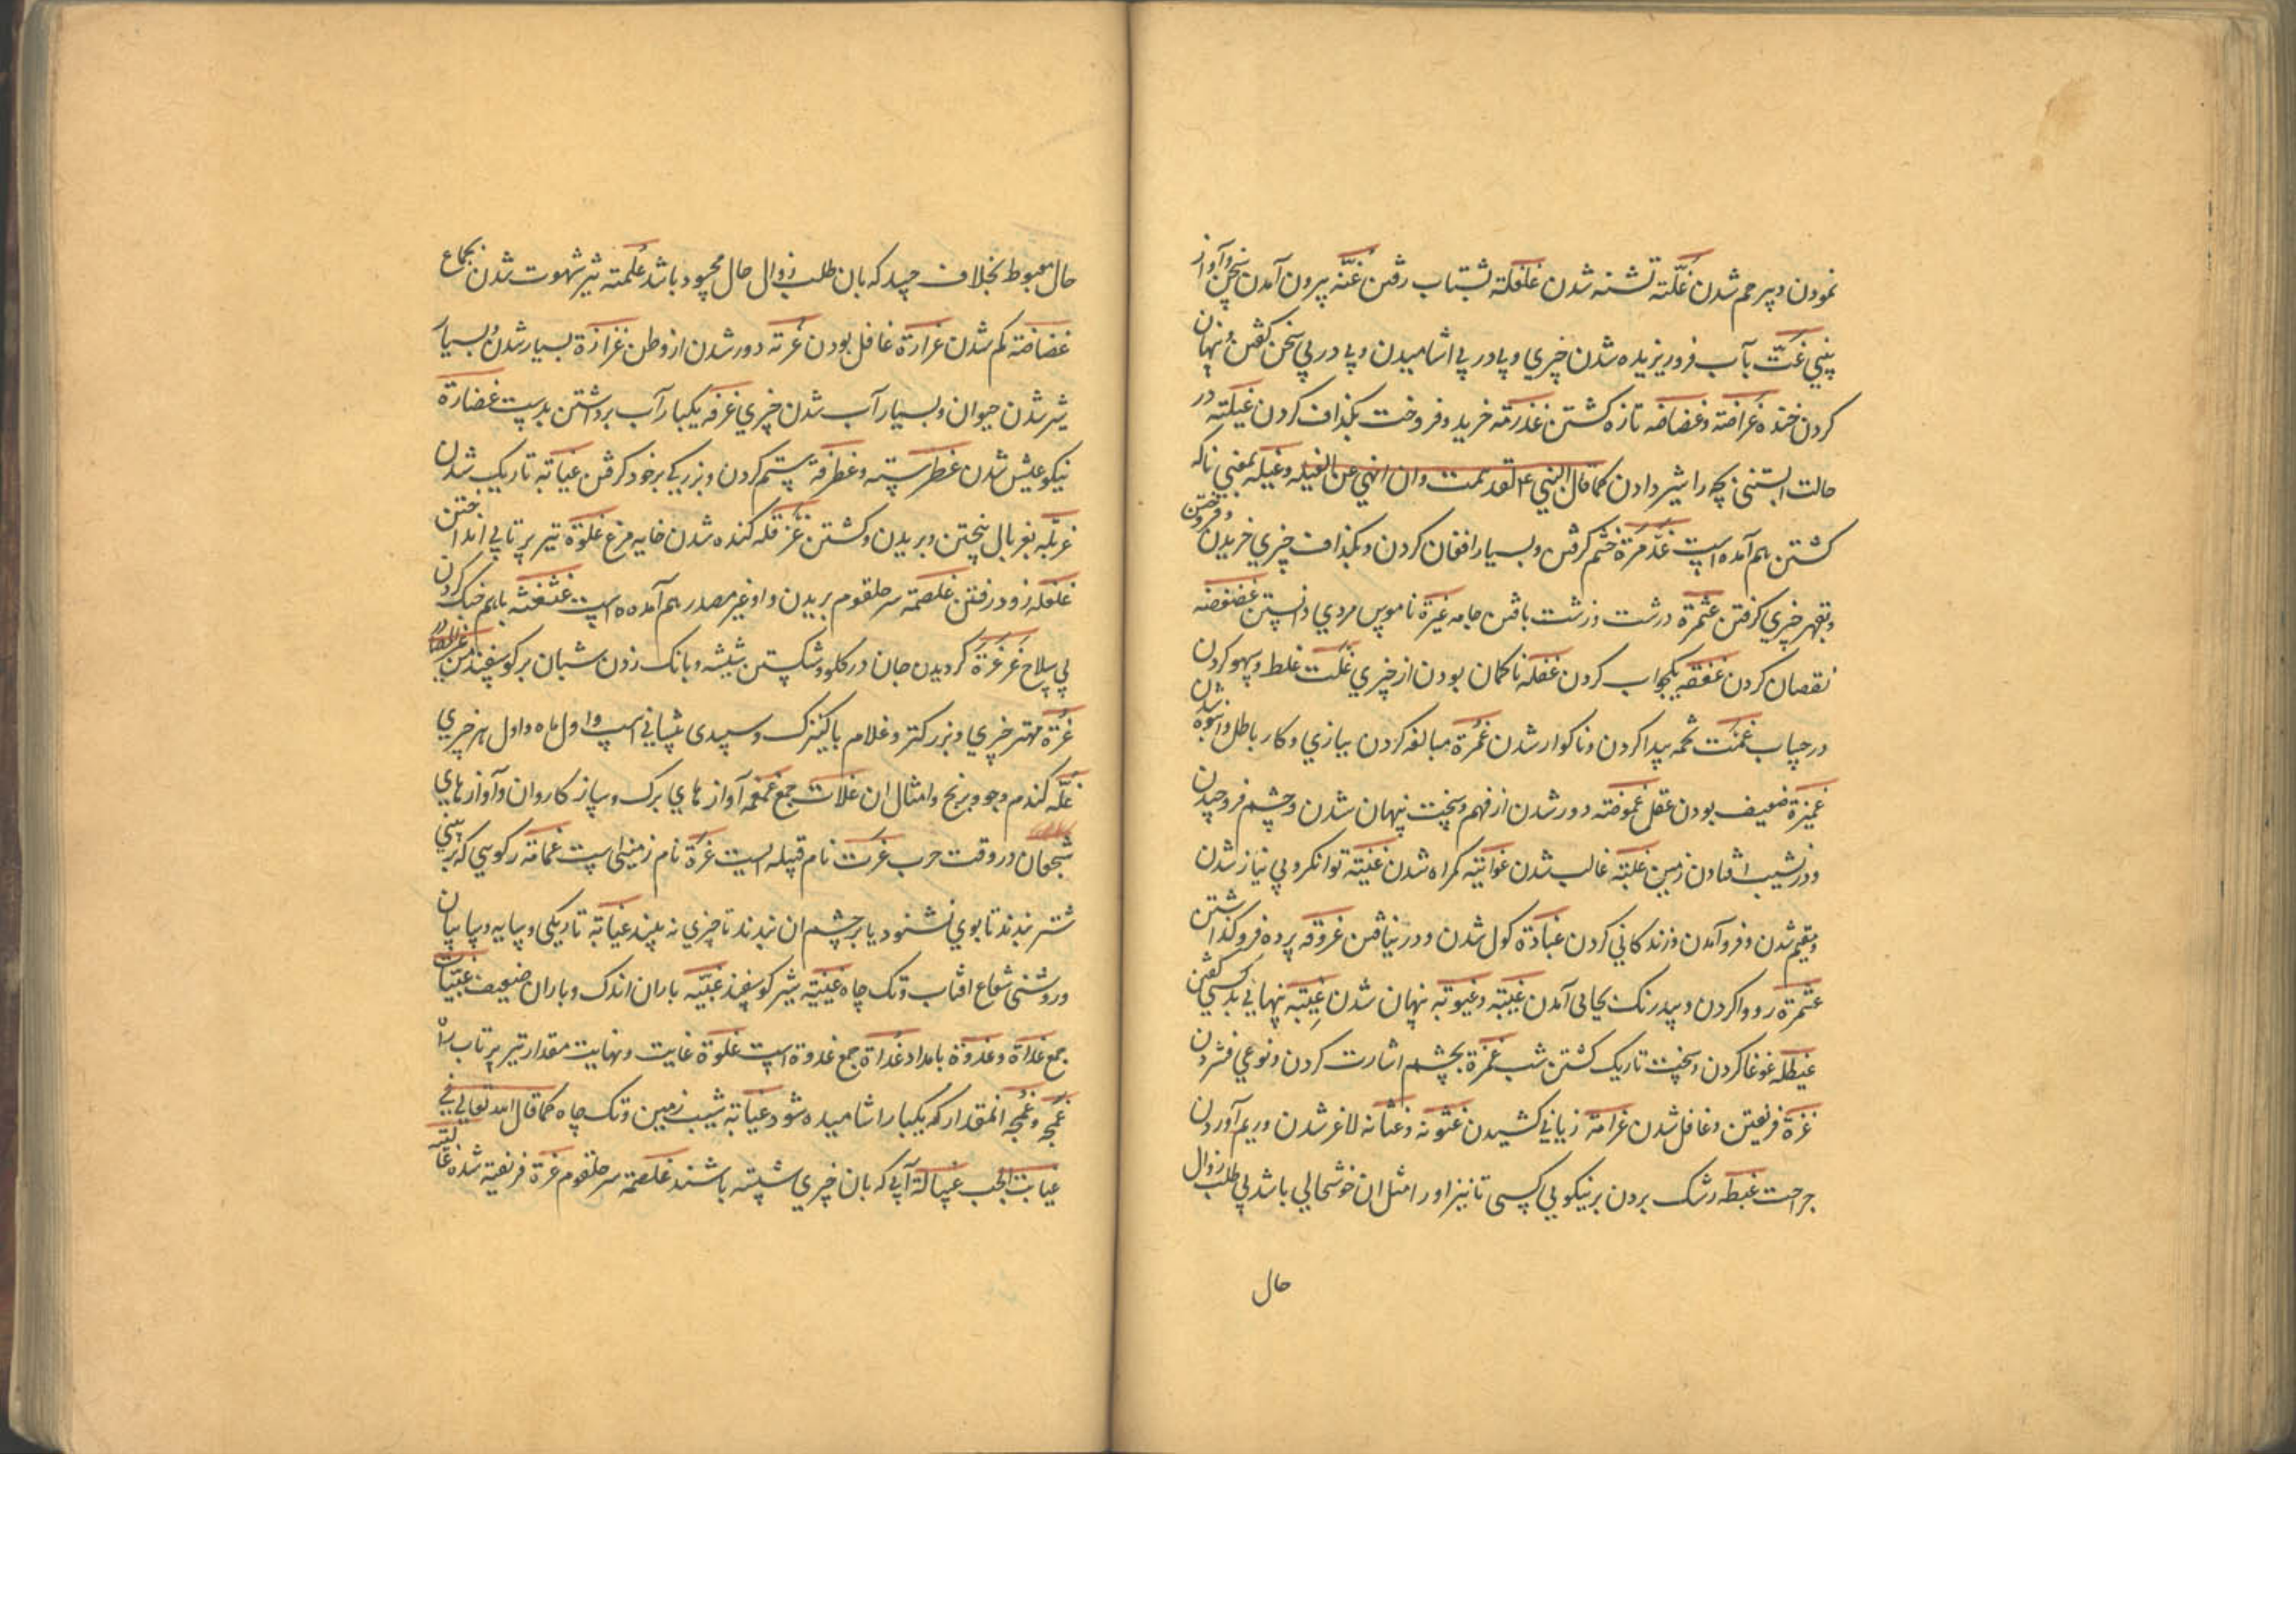 نمودن و پر خم شدن غلّته تشنه شدن غلغلة بشتاب رفتن غنّه بیرون آمدن سخن و آواز
بینی غتّ بآب فرو ریزیده شدن چیزی و پی در پی اشامیدن و پی در پی سخن کفتن و پنهان
کردن خنده غراضة و غضاضه تازه کشتن غذرمه خرید و فروخت بکذاف کردن غیلته در
حالت ابستنی بچه را شیر دادن کما قال النبی لقد همت وان انهی عن الغیله و غیله بمعنی ناکه
کشتن هم آمده است غذمرة خشم کرفتن و بسیار افغان کردن و بکذاف چیزی خریدن و فروختن
و بقهر چیزی کرفتن غثمرة درشت و زشت بافتن جامه غیرة ناموس مردی دانستن غضغضه
نقصان کردن غفقه یکخواب کردن غفله ناکمان بودن از چیزی غلت غلط و سهو کردن
در حساب غمت تخمه پیدا کردن و ناکوار شدن غمرة مبالغه کردن ببازی و کار باطل و انبوه شدن
غمیزة ضعیف بودن عقل غموضته دور شدن از فهم و سخت پنهان شدن و چشم فرو
و در نشیب افتادن زمین غلبته غالب شدن غوایته کمراه شدن غنیته توانکر و بی نیاز شدن
و مقیم شدن و فرو آمدن و زندکانی کردن غباذة کول شدن و در نیافتن غروقه پرده فرو کذاشتن
غثمرة روا کردن و بیدرنک بجایی آمدن غیبته و غیوبه پنهان شدن غیبته پنهانی بد کسی کفتن
غیطله غوغا کردن و سخت تاریک کشتن شب غمزة بچشم اشارت کردن و نوعی فشردن
غرة فریفتن و غافل شدن غرامة زیانی کشیدن غثوثه و غثاثه لاغر شدن و ریم آوردن
جراحت غبطه رشک بردن بر نیکویی کسی تا نیز او را مثل ان خوشحالی باشد بی طلب زوال
حال
حال مغبوط بخلاف حسد که بان طلب زوال حال محسود باشد غلمته تیز شهوت شدن بجماع
غضاضته کم شدن غرارة غافل بودن غربه دور شدن از وطن غزارة بسیار شدن و بسیار
شیر شدن حیوان و بسیار آب شدن چیزی غرفه یکبار آب برداشتن بدست غضارة
نیکو عیش شدن غطرسته و غطرفة ستم کردن و بزرکی بر خود کرفتن غیابه تاریک شدن
غربله بغربال بیختن و بریدن و کشتن غرقله کنده شدن خایه مرغ غلوة تیر پرتابی انداختن
غلغله زود رفتن غلصمة سر حلقوم بریدن و او غیر مصدر هم آمده است غثغثه باهم جنک کردن
بی سلاح غرغرة کردیدن جان در کلو و شکستن شیشه و بانک زدن شبان بر کوسفند
غرة مهتر چیزی و بزرکتر و غلام با کنیزک و سپیدی پیشانی اسپ و اول ماه و اول هر چیزی
غلّه کندم و جو و برنج و امثال ان غلات جمع غمغمه آوازهای بزرک و ساز کاروان و آوازهای
شجعان در وقت حرب غرت نام قبیله ایست غزة نام زمینی است غمامة رکویی که بر بینی
شتر بندند تا بوی نشنود یا بر چشم ان بندند تا چیزی نه بیند غیابة تاریکی و سایه و سایبان
و روشنی شعاع افتاب و تک چاه غبیبته شیر کوسفند غبیّه باران اندک و باران ضعیف غبیّات
جمع غداة و غدوة بامداد غداة جمع غدوة است غلوة غایت و نهایت مقدار تیر پرتاب
غمجه و غمجه انمقدار که بیکبار اشامیده شود غیابة شیب زمین و تک چاه کما قال الله تعالی فی
غیابت الجب غسالة آبی که بان چیزی شسته باشند غلصمة سر حلقوم غرة فریفته شده غالیته